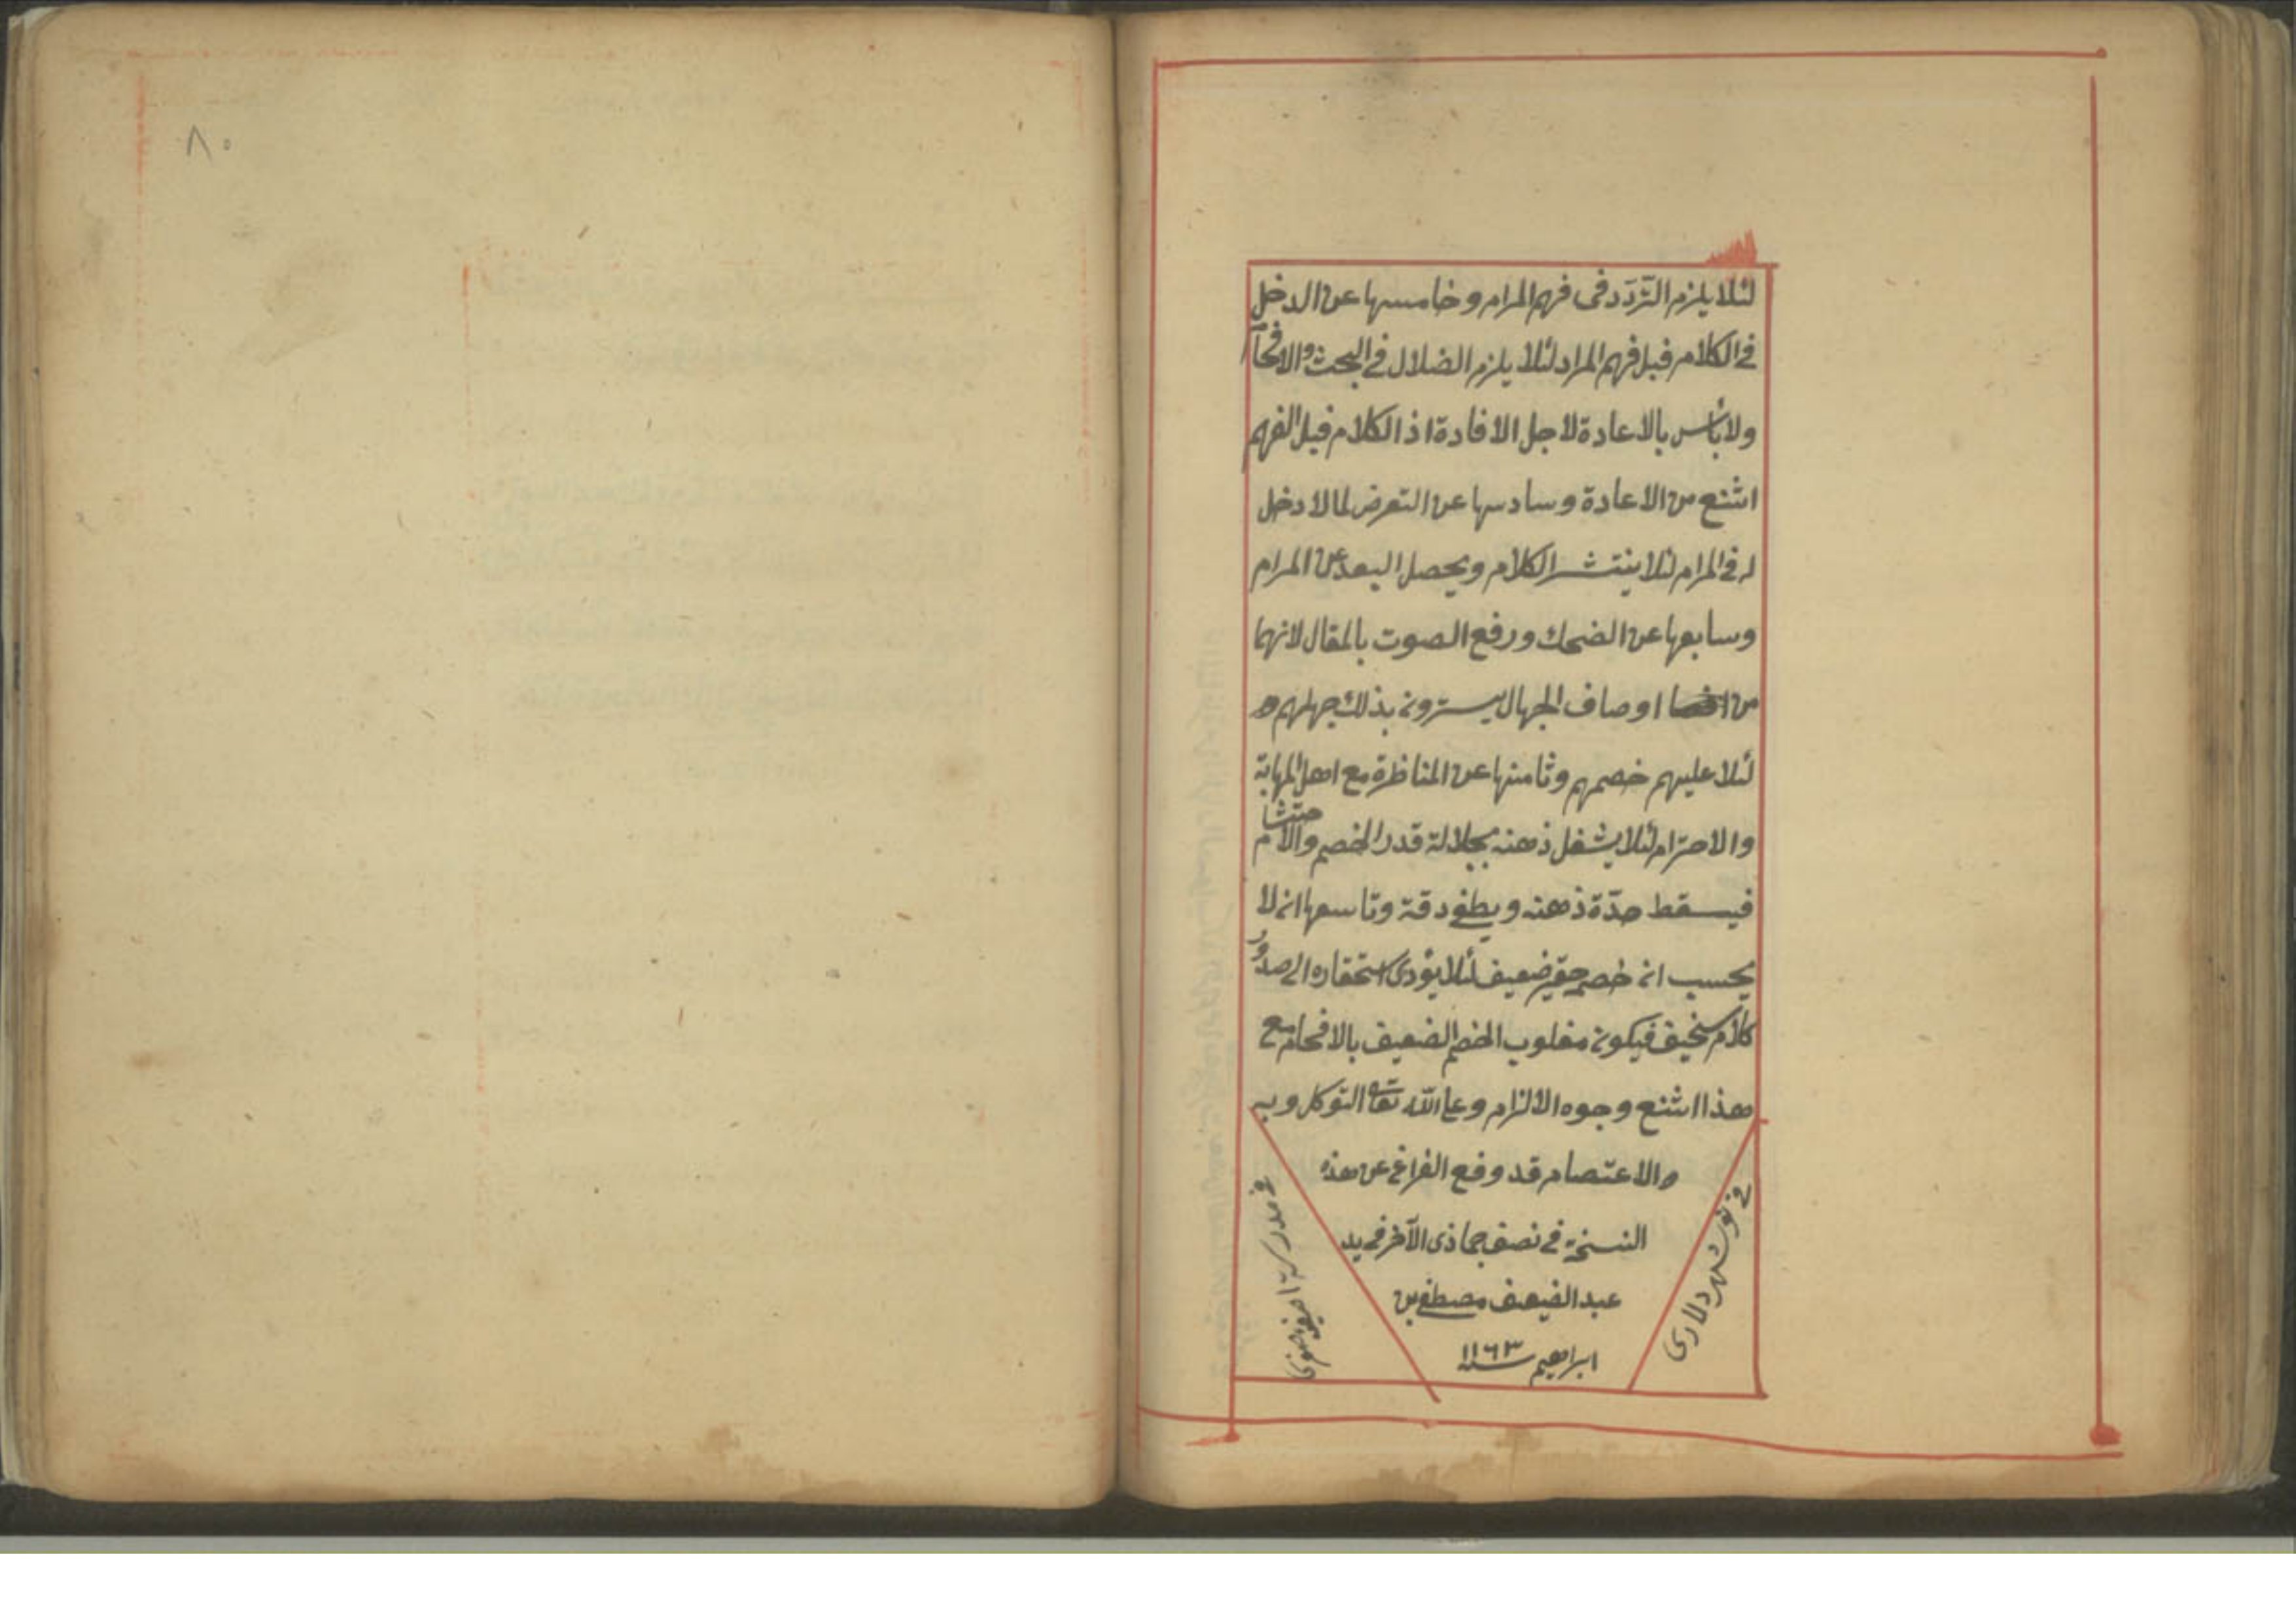 ٨٠
لئلا يلزم التّردّد فى فهم المرام وخامسها عن الدخل
فى الكلام قبل فهم المراد لئلا يلزم الضلال فى البحث والافحآ
ولا بأس بالاعادة لاجل الافادة اذ الكلام قبل الفهم
اشنع من الاعادة وسادسها عن التعرض لما لا دخل
له فى المرام لئلا ينتشر الكلام ويحصل البعد عن المرام
وسابعها عن الضحك ورفع الصوت بالمقال لانهما
من اوصاف الجهال يسترون بذلك جهلهم
لئلا عليهم خصمهم وثامنها عن المناظرة مع اهل المهابة
والاحترام لئلا يشغل ذهنه بجلالة قدر الخصم والاحتشام
فيسقط حدّة ذهنه ويطفى دقة وتاسعها انه لا
يحسب انه خصم حقير ضعيف لئلا يؤدى استحقاره الى صدور
كلام سخيف فيكون مغلوب الخصم الضعيف بالافحام مع
هذا اشنع وجوه الالزام وعلى الله تعالى التوكل وبه
والاعتصام قد وقع الفراغ عن هذه
النسخة فى نصف جماذى الآخر فى يد
عبد الضعيف مصطفى بن
ابراهيم سنه ١١٦٣
فى نوشهردلارى
فى مدرسة